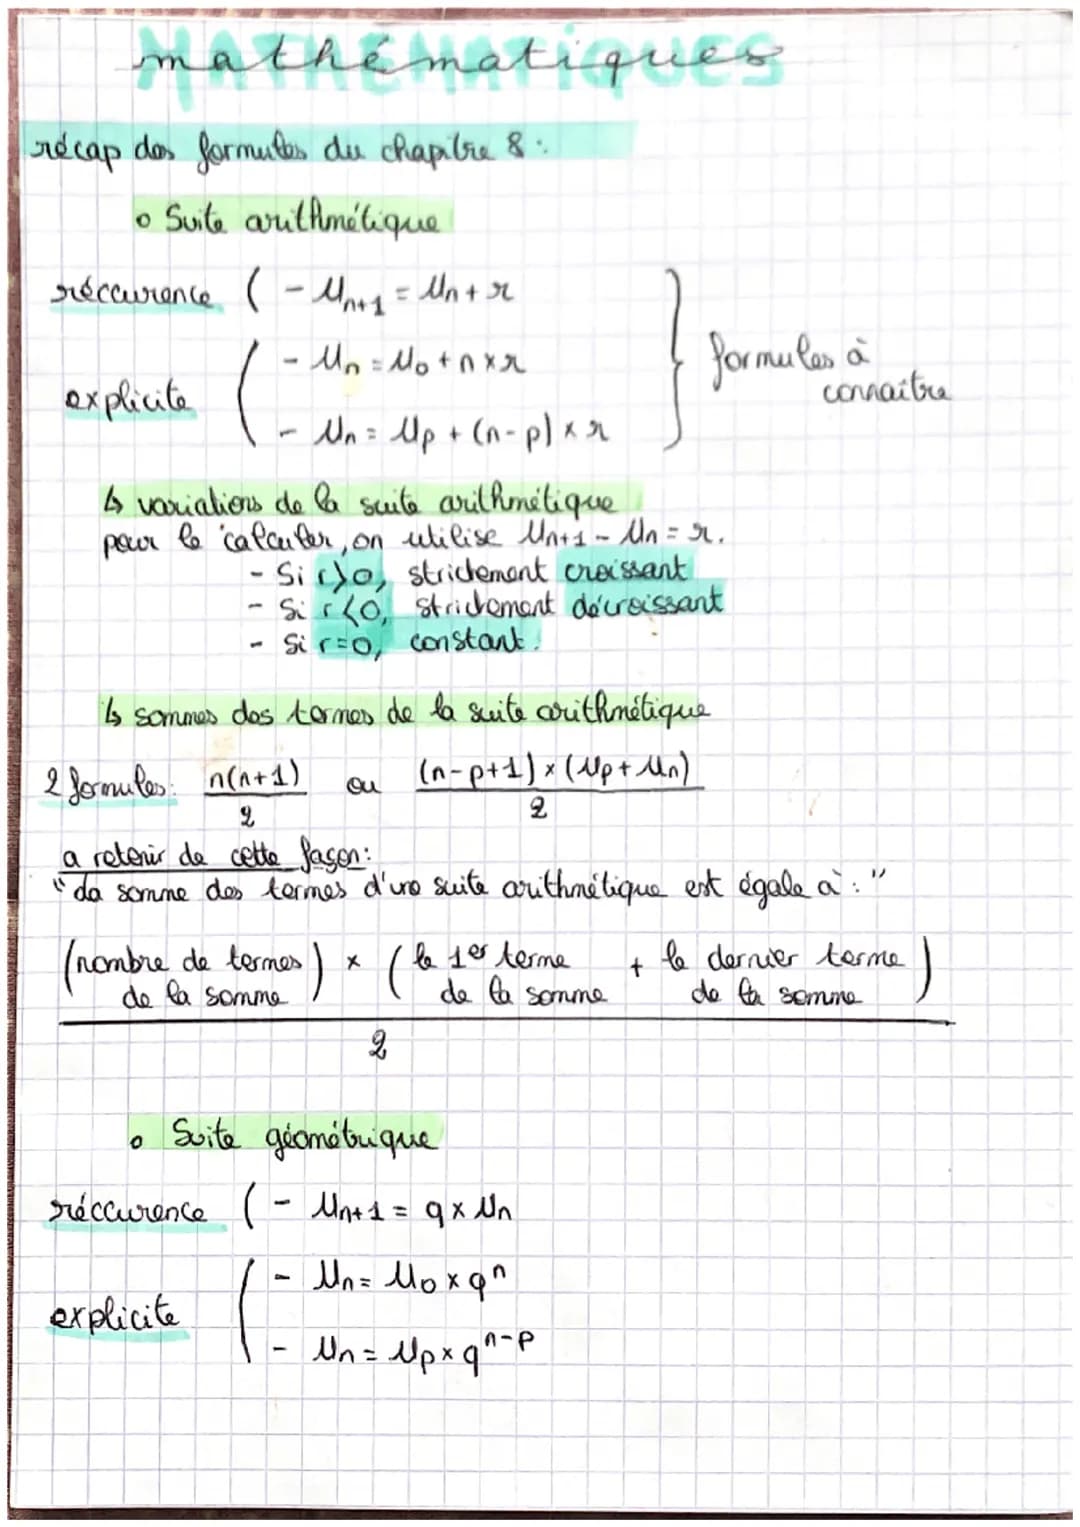 MATHÉMATIQUES
mathématiques
récap des formules du chapitre 8 :
o Suite arithmétique
réccurence ( - Un+1 = Un + r
- Un = U0 + n × r
formules à connaitre
explicite
- Un = Up + (n-p) × r
↳ variations de la suite arithmétique
pour le calculer, on utilise Un+1 - Un = r.
- Si r>0, strictement croissant
- Si r<0, strictement décroissant
- Si r=0, constant.
↳ sommes des termes de la suite arithmétique
2 formules: n(n+1)/2 ou (n-p+1) × (Up + Un)/2
a retenir de cette façon:
"La somme des termes d'une suite arithmétique est égale à : "
(nombre de termes de la somme) × (le 1er terme de la somme + le dernier terme de la somme)
2
o Suite géométrique
réccurence ( - Un+1 = q × Un
- Un = U0 × qⁿ
explicite
- Un = Up × qⁿ⁻ᵖ